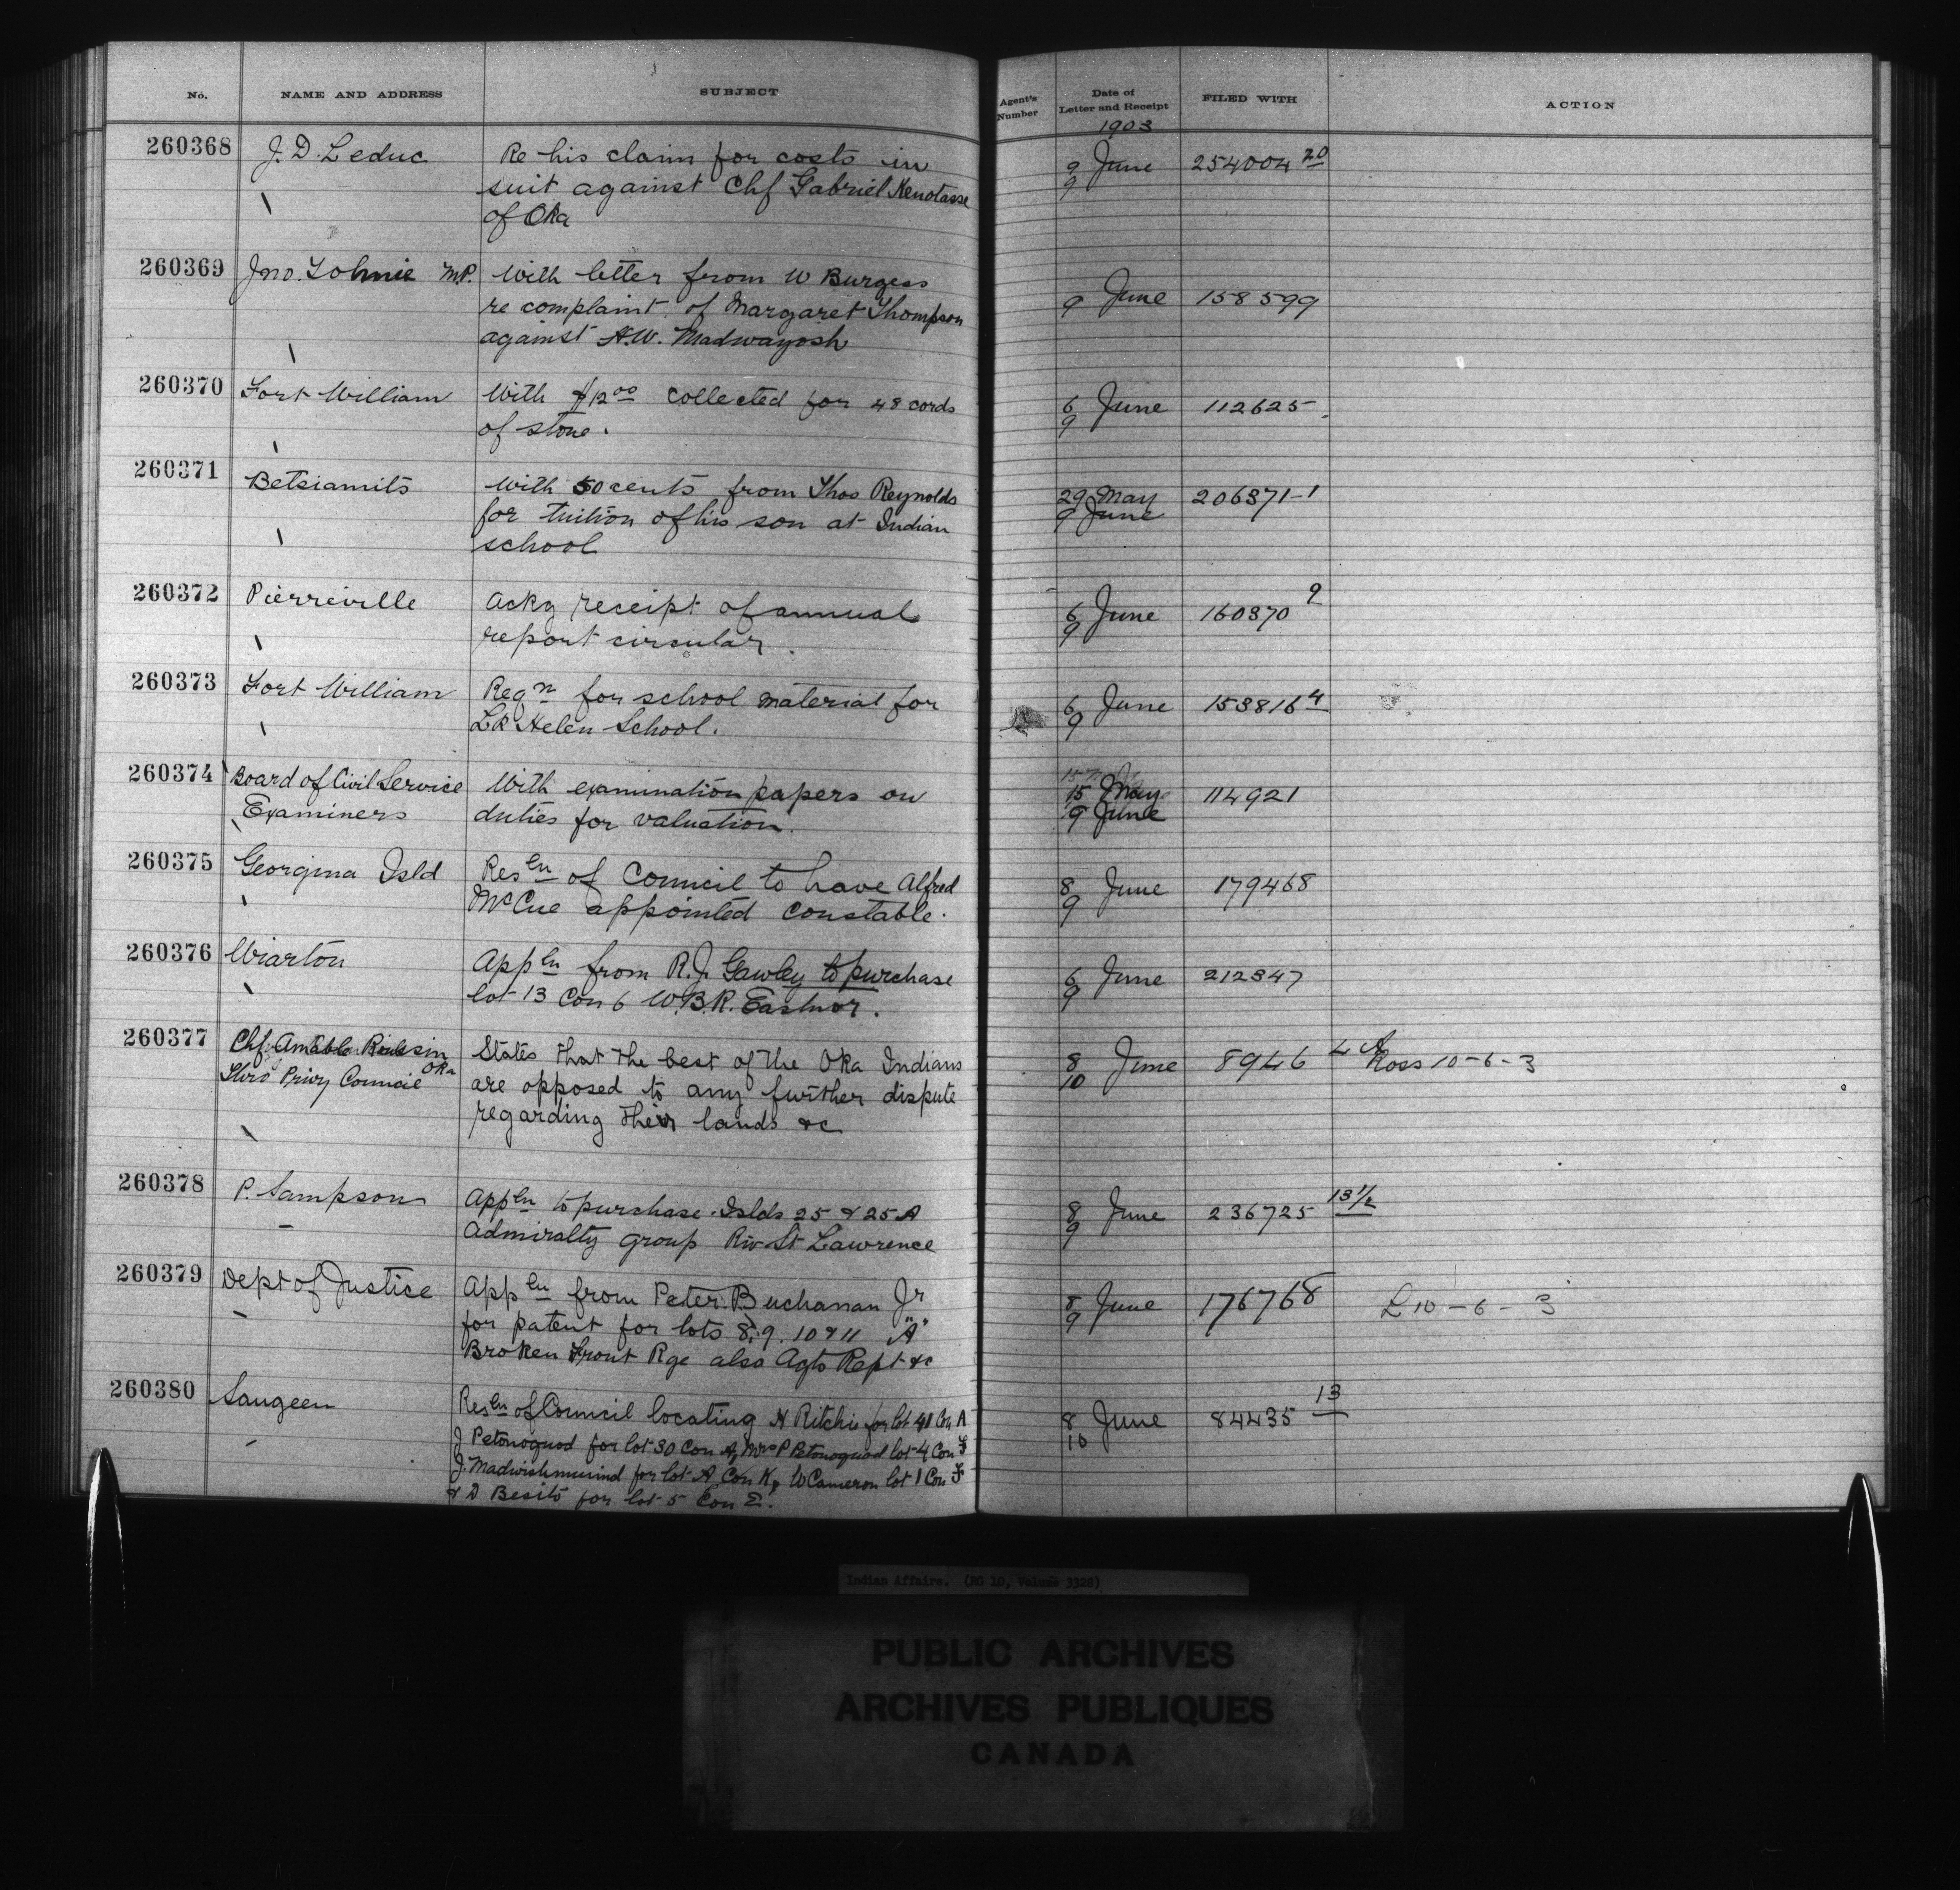 No. NAME AND ADDRESS SUBJECT Agent's Number Date of Letter and Receipt FILED WITH ACTION
1903
260368 J. D. Leduc Re his claim for costs in 9 June 254004 20
suit against Chf Gabriel Kenotasse 9
of Oka
260369 Jno. Tolmie M.P. With letter from W Burgess
re complaint of Margaret Thompson 9 June 158599
against A.W. Madwayosh
260370 Fort William With $12 00 collected for 48 cords 6 June 112625
of stone. 9
260371 Betsiamits With 50 cents from Thos Reynolds 29 May 206371-1
for tuition of his son at Indian 9 June
school
260372 Pierreville Ackg receipt of annual 6 June 160370 9
report circular. 9
260373 Fort William Reqn for school material for 6 June 153816 4
School. 9
260374 Board of Civil Service With examination papers on 15 May 114921
Examiners duties for valuation. 9 June
260375 Georgina Isld Resln of Council to have Alfred 8 June 179468
McCue appointed constable. 9
260376 Wiarton Appln from R.J. Gawley to purchase 6 June 212347
lot 13 Con 6 W.B.R. Eastnor. 9
260377 Chf. Amable Oka States that the best of the Oka Indians 8 June 8946 4 A Ross 10-6-3
Thro Privy Council are opposed to any further dispute 10
regarding their lands &c
260378 P. Sampson Appln to purchase Islds 25 & 25A 8 June 236725 13 1/2
Admiralty group Riv St Lawrence 9
260379 Dept of Justice Appln from Peter Buchanan Jr 8 June 176768 L 10-6-3
for patent for lots 8, 9. 10 & 11 "A" 9
Broken Front Rge also Agts Rept &c
260380 Saugeen Resln of Council locating H Ritchie for lot 41 Con A 8 June 84435 13
J Petonoquod for lot 30 Con A, Mrs P Petonoquod lot 4 Con F 10
J. for lot A Con K, W Cameron lot 1 Con F
& D Besito for lot 5 Con E.
Indian Affairs. (RG 10, Volume 3328)
PUBLIC ARCHIVES
ARCHIVES PUBLIQUES
CANADA